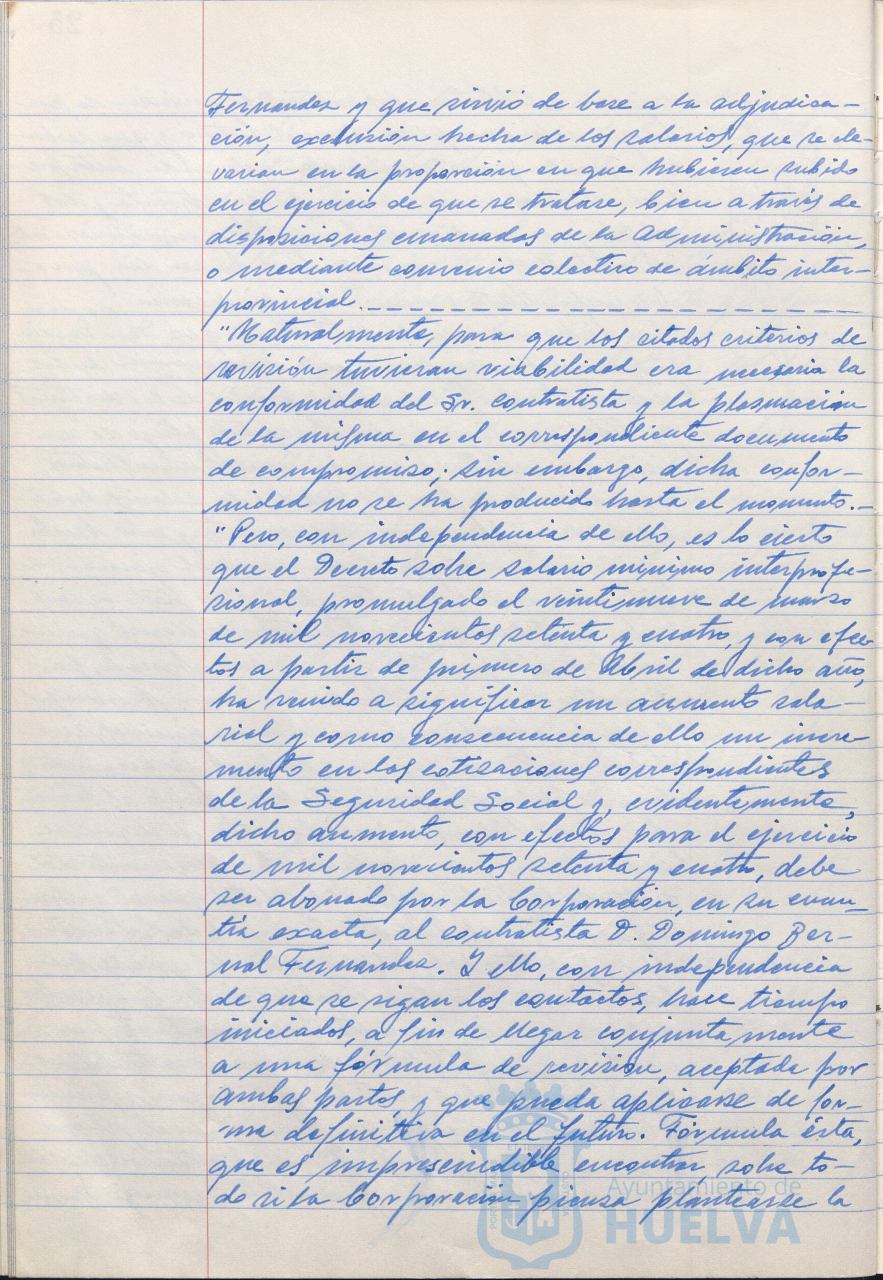 Fernandez y que sirvió de base a la adjudica-
ción, exclusión hecha de los salarios, que se ele-
varian en la proporción en que hubiesen subido
en el ejercicio de que se tratase, bien a través de
disposiciones emanadas de la Administración,
o mediante convenio colectivo de ámbito inter-
provincial.
"Naturalmente, para que los citados criterios de
revisión tuvieran viabilidad era necesaria la
conformidad del Sr. contratista y la plasmación
de la misma en el correspondiente documento
de compromiso; sin embargo, dicha confor-
midad no se ha producido hasta el momento.-
"Pero, con independencia de ello, es lo cierto
que el Decreto sobre salario mínimo interprofe-
sional, promulgado el veintinueve de marzo
de mil novecientos setenta y cuatro, y con efec
tos a partir de primero de Abril de dicho año,
ha venido a significar un aumento sala-
rial y como consecuencia de ello un incre-
mento en las cotizaciones correspondientes
de la Seguridad Social y, evidentemente,
dicho aumento, con efectos para el ejercicio
de mil novecientos setenta y cuatro, debe
ser abonado por la Corporación, en su cuan-
tía exacta, al contratista D. Domingo Ber-
nal Fernandez. Y ello, con independencia
de que se sigan los contactos, hace tiempo
iniciados, a fin de llegar conjuntamente
a una fórmula de revisión, aceptada por
ambas partes, y que pueda aplicarse de for-
ma definitiva en el futuro. Fórmula ésta,
que es imprescindible encontrar sobre to-
do si la Corporación piensa plantearse la
Ayuntamiento de
HUELVA